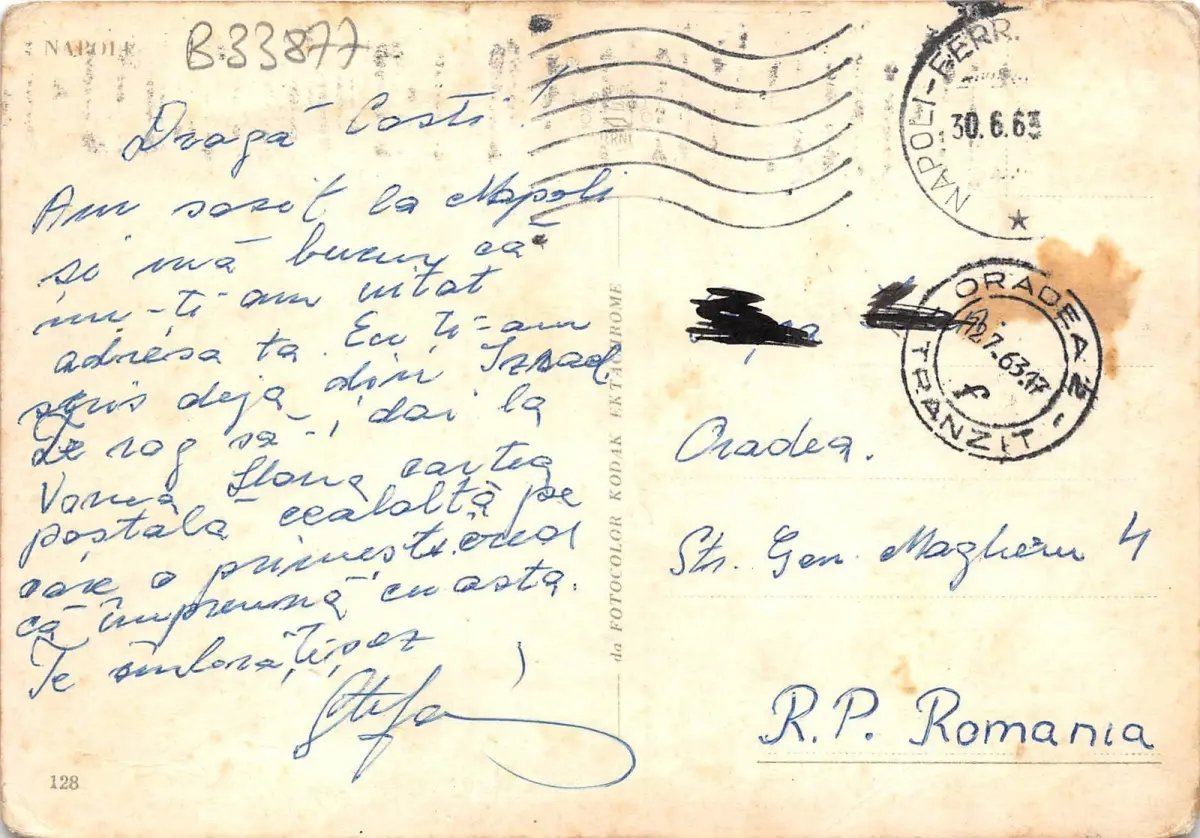 NAPOLI
B33877
Dragă Costi!
Am sosit la Napoli
si mă bucur că
nu-ti-am uitat
adresa ta. Eu ti-am
scris deja din Izrael.
Te rog să-i dai la
Ilona cartea
postală cealaltă pe
care o primesti cred
că împreună cu asta.
Te îmbrățișez
Ștefan
128
da FOTOCOLOR KODAK EKTACHROME
NAPOLI-FERR.
30.6.63
ORADEA 2
7.63.17
TRANZIT
Oradea.
Str. Gen. Magheru 4
R.P. Romania